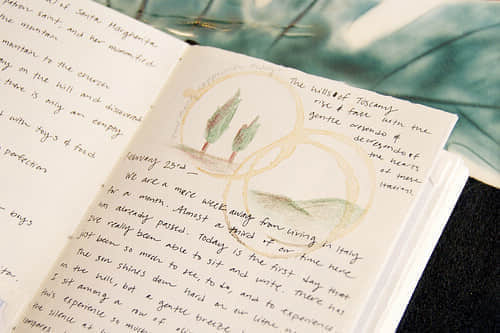 of Santa Margherita
patron saint and her mummified
the mountain.
mountain to the church
on the hill and discovered
there is only an empty
with toys & food
perfection
toys
The hills of Toscany
rise & fall with the
gentle cresendo &
decresendo of
the hearts
of these
Italians.
February 23rd —
We are a mere week away from living in Italy
for a month. Almost a third of our time here
has already passed. Today is the first day that
I've really been able to sit and write. There has
just been so much to see, to do, and to experience
The sun shines down hard on our little
on the hill, but a gentle breeze
I sit among a row of
this experience so much
the silence of